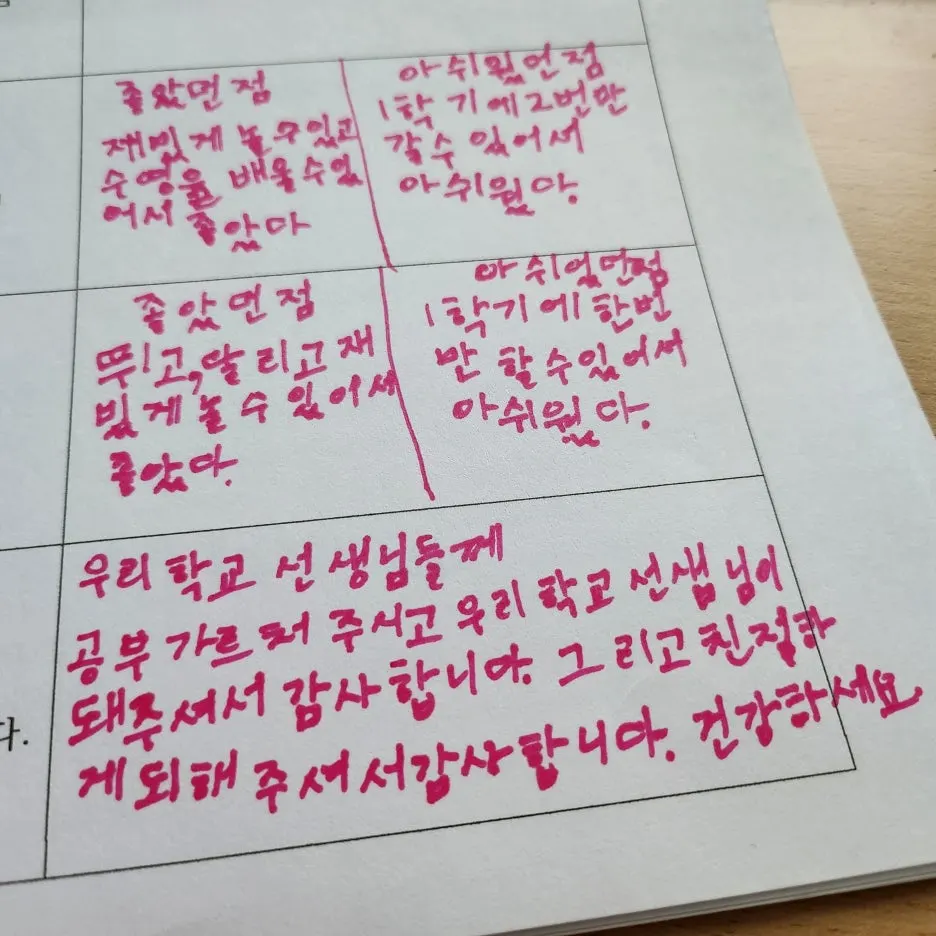 좋았던 점
재밌게 놀 수 있고
수영을 배울 수 있
어서 좋았다
아쉬웠던 점
1학기에 2번만
갈 수 있어서
아쉬웠다.
좋았던 점
뛰고, 달리고 재
밌게 놀 수 있어서
좋았다.
아쉬웠던 점
1학기에 한번
만 할 수 있어서
아쉬웠다.
우리 학교 선생님들께
공부 가르쳐 주시고 우리 학교 선생님이
돼주셔서 감사합니다. 그리고 친절하
게 대해 주셔서 감사합니다. 건강하세요
다.